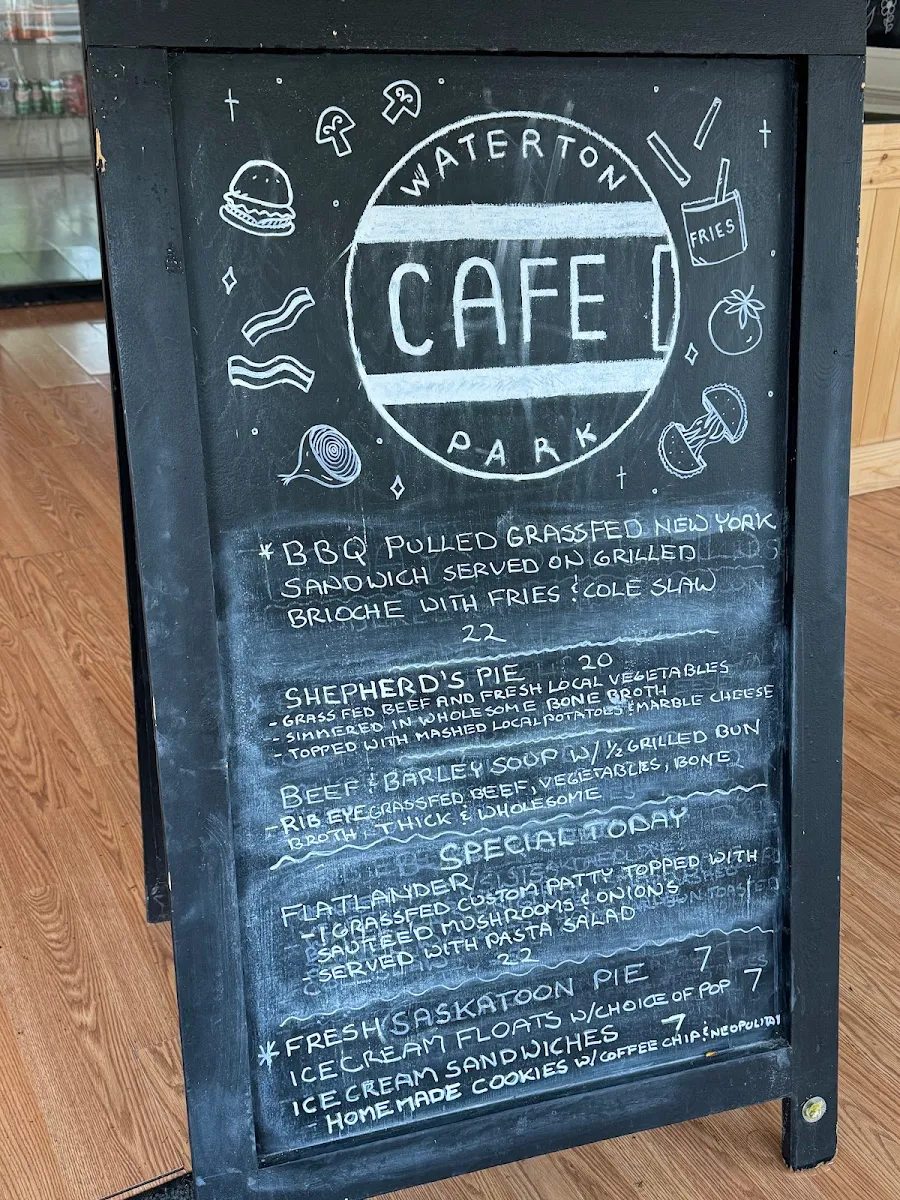 WATERTON
CAFE
PARK
FRIES
* BBQ PULLED GRASSFED NEW YORK
SANDWICH SERVED ON GRILLED
BRIOCHE WITH FRIES & COLE SLAW
22
SHEPHERD'S PIE 20
- GRASS FED BEEF AND FRESH LOCAL VEGETABLES
- SIMMERED IN WHOLESOME BONE BROTH
- TOPPED WITH MASHED LOCAL POTATOES & MARBLE CHEESE
BEEF & BARLEY SOUP W/ 1/2 GRILLED BUN
- RIB EYE GRASSFED BEEF, VEGETABLES, BONE
BROTH, THICK & WHOLESOME
SPECIAL TODAY
FLATLANDER
- 1 GRASSFED CUSTOM PATTY TOPPED WITH
SAUTEED MUSHROOMS & ONIONS
- SERVED WITH PASTA SALAD
22
FRESH SASKATOON PIE 7
* ICE CREAM FLOATS W/CHOICE OF POP 7
ICE CREAM SANDWICHES 7
- HOMEMADE COOKIES W/COFFEE CHIP & NEOPOLITAN